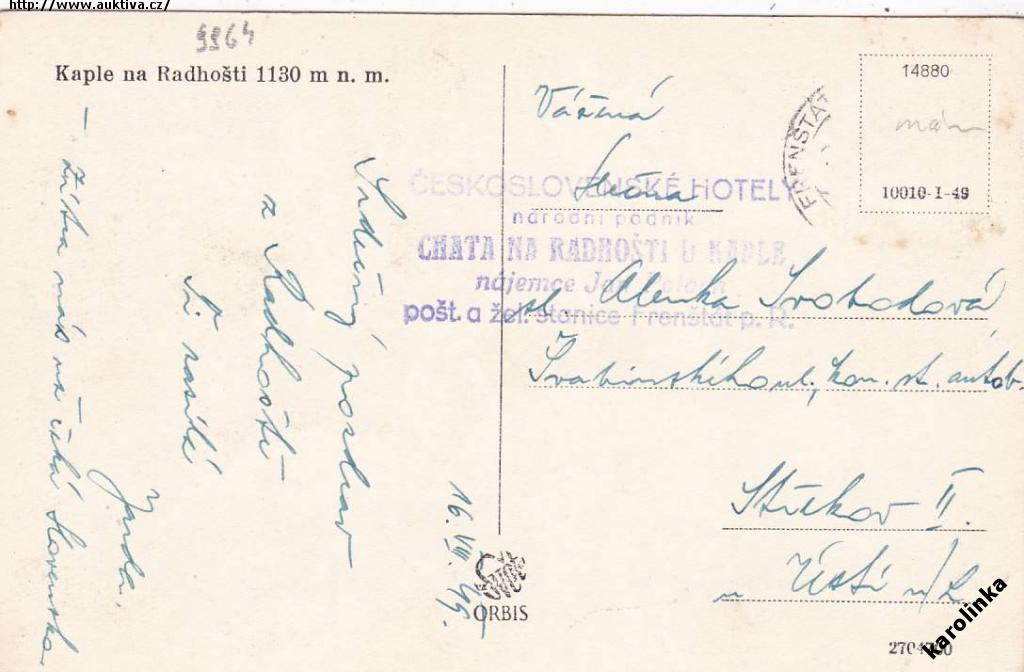 http://www.auktiva.cz/
9964
Kaple na Radhošti 1130 m n. m.
Srdečný pozdrav
z Radhoště
Ti zasílá
Jarda.
– Zítra nás už čeká Slovensko.
16. VIII. 49.
ORBIS
ČESKOSLOVENSKÉ HOTELY
národní podnik
CHATA NA RADHOŠTI U KAPLE
nájemce Jan
pošt. a žel. stanice Frenštát p. R.
FRENŠTÁT
14880
10010-I-49
Vážená
slečna
sl. Alenka Svobodová
Švabinského ul., kon. st. autob.
Střekov II.
u Ústí n/L
karolinka